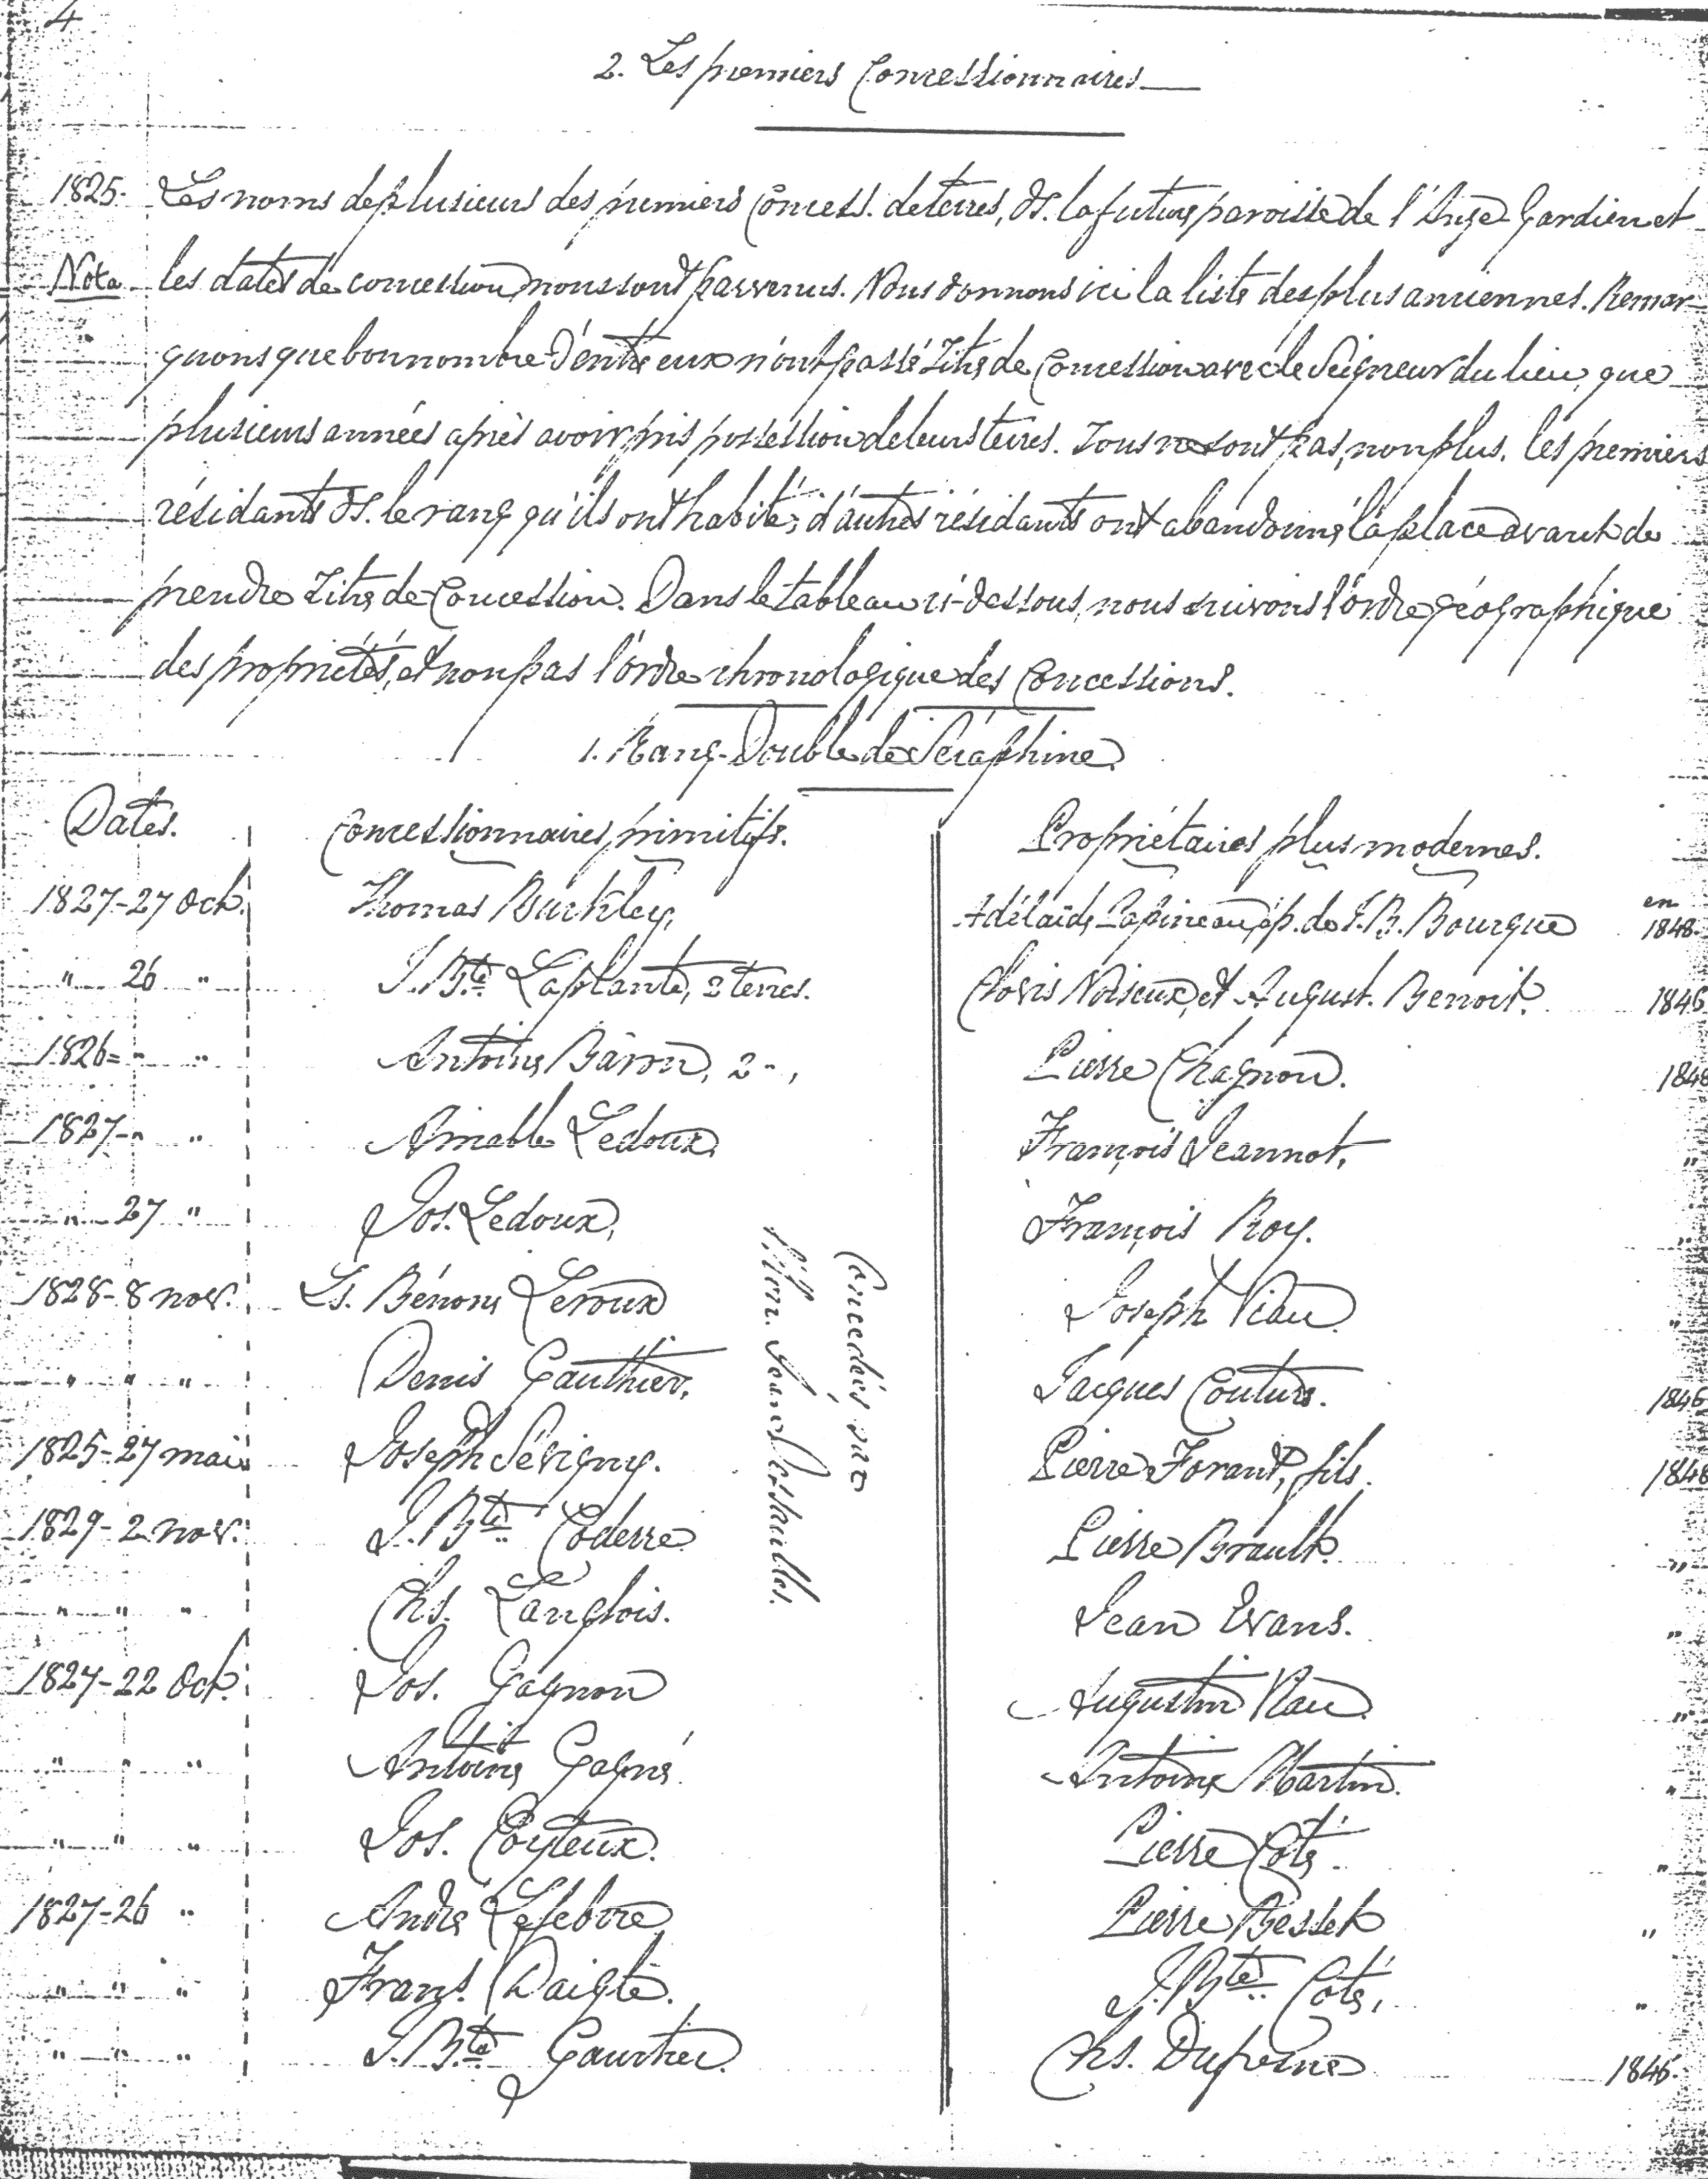 4
2. Les premiers Concessionnaires
1825. Les noms de plusieurs des premiers Concess. de terres, ds. la future paroisse de l'Ange Gardien et
Nota les dates de concession nous sont parvenus. Nous donnons ici la liste des plus anciennes. Remar-
quons que bon nombre d'entre eux n'ont passé Titre de Concession avec le Seigneur du lieu, que
plusieurs années après avoir pris possession de leurs terres. Tous ne sont pas, non plus, les premiers
résidants ds. le rang qu'ils ont habité; d'autres résidants ont abandonné la place avant de
prendre Titre de Concession. Dans le tableau ci-dessous, nous suivons l'ordre géographique
des propriétés, et non pas l'ordre chronologique des Concessions.
1. Rang-Double de Séraphine.
Dates. Concessionnaires primitifs. Propriétaires plus modernes.
1827-27 Oct. Thomas Buckley, Adélaïde Papineau, ép. de J.B. Bourque en 1848.
" 26 " J. Bte. Laplante, 2 terres. Clovis Noiseux, et August. Benoit. 1846
1826 = " " Antoine Baron, 2 " , Pierre Chagnon. 1848
1827- " " Aimable Ledoux, François Jeannot, "
" 27 " Jos. Ledoux, François Roy. "
1828-8 nov. Ls. Bénoni Leroux Joseph Viau "
" " " Denis Gauthier, Jacques Couture. 1846
1825-27 mai Joseph Sévigny. Pierre Forant, fils. 1848
1829-2 nov. J. Bte Coderre Pierre Brault. "
" " " Chs. Langlois. Jean Evans. "
1827-22 Oct. Jos. Gagnon Augustin Viau "
" " " Antoine Gagné. Antoine Martin. "
" " " Jos. Coyteux. Pierre Coté. "
1827-26 " André Lefebvre, Pierre Bessett "
" " " Frans. Daigle. J. Bte. Coté, "
" " " J. Bte. Gauthier. Chs. Dufresne 1846.
Concédés par
l'Hon. Jean Dessaulles.